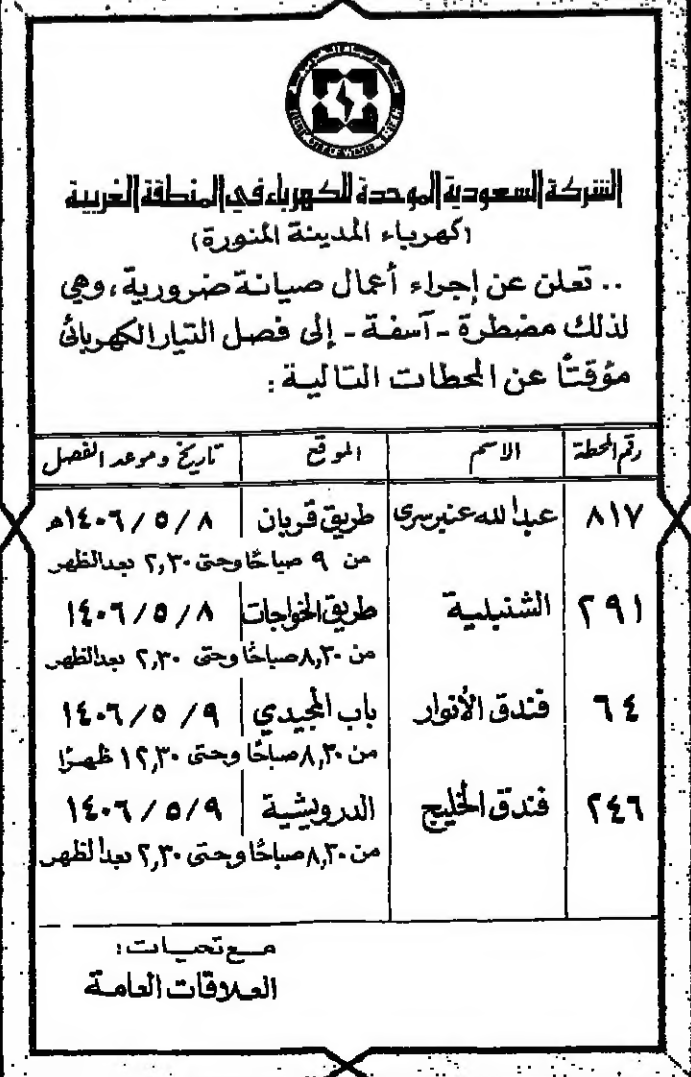 الشركة السعودية الموحدة للكهرباء في المنطقة الغربية
(كهرباء المدينة المنورة)
.. تعلن عن إجراء أعمال صيانة ضرورية، وهي
لذلك مضطرة - آسفة - إلى فصل التيار الكهربائى
مؤقتًا عن المحطات التالية :
رقم المحطة الاسم الموقع تاريخ وموعد الفصل
٨١٧ عبدالله طريق قربان ١٤٠٦/٥/٨هـ
من ٩ صباحًا وحتى ٢,٣٠ بعد الظهر
٢٩١ الشنبلية طريق الخواجات ١٤٠٦/٥/٨
من ٨,٣٠ صباحًا وحتى ٢,٣٠ بعد الظهر
٦٤ فندق الأنوار باب المجيدي ١٤٠٦/٥/٩
من ٨,٣٠ صباحًا وحتى ١٢,٣٠ ظهرًا
٢٤٦ فندق الخليج الدرويشية ١٤٠٦/٥/٩
من ٨,٣٠ صباحًا وحتى ٢,٣٠ بعد الظهر
مع تحيات :
العلاقات العامة